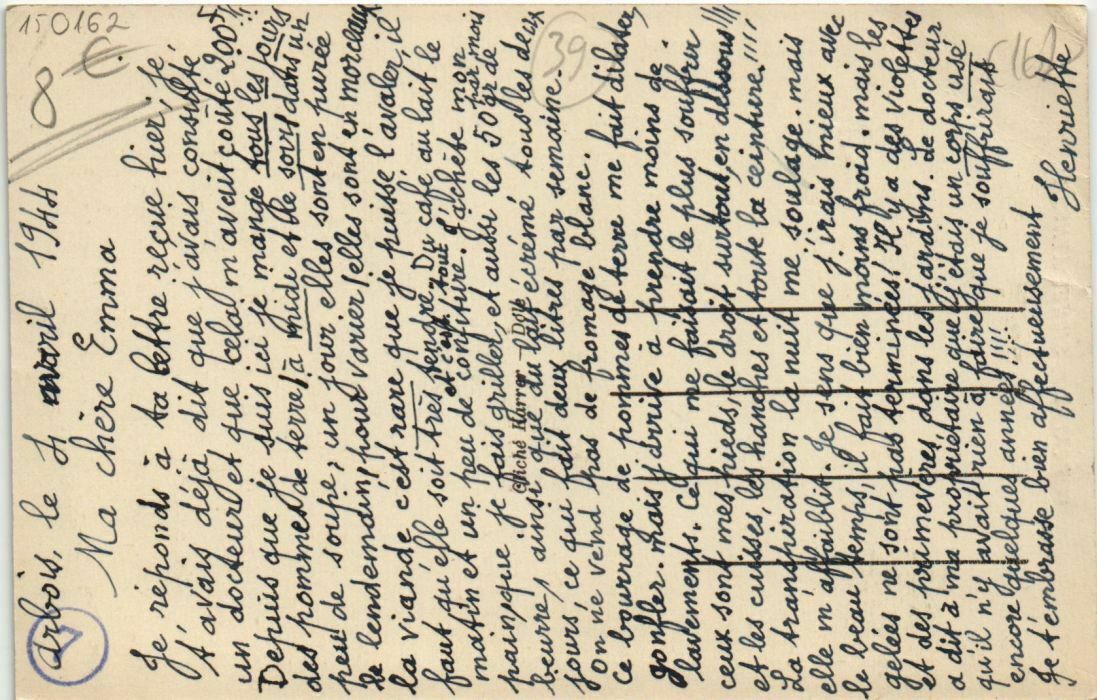 150162
8 €.
39
(162
Arbois, le 4 avril 1944
Ma chère Emma
Je réponds à ta lettre reçue hier, je
t'avais déjà dit que j'avais consulté
un docteur et que cela m'avait coûté 200f !!!
Depuis que je suis ici je mange tous les jours
des pommes de terre à midi et le soir dans un
peu de soupe, un jour elles sont en purée
le lendemain, pour varier, elles sont en morceaux
la viande c'est rare que je puisse l'avaler, il
faut qu'elle soit très tendre. Du café au lait le
matin et un peu de confiture et c'est tout. J'achète mon
pain, que je fais griller, et aussi les 50 gr de par mois
beurre, ainsi que du lait écrémé tous les deux
jours ce qui fait deux litres par semaine.
On ne vend pas de fromage blanc.
Ce bourrage de pommes de terre me fait dilater,
gonfler. mais j'arrive à prendre moins de
lavements. Ce qui me faisait le plus souffrir
ceux sont mes pieds, le droit surtout, en dessous !!!
et les cuisses, les hanches et toute la ceinture !!!!
La transpiration la nuit me soulage. mais
elle m'affaiblit. Je sens que j'irais mieux avec
le beau temps, il fait bien moins froid. mais les
gelées ne sont pas terminées! Il y a des violettes
et des primevères dans les jardins. Le docteur
a dit à ma propriétaire que j'étais un corps usé
qu'il n'y avait rien à faire, que je souffrirais
encore quelques années !!!!
Je t'embrasse bien affectueusement
Henriette
Cliché Karrer - Dole